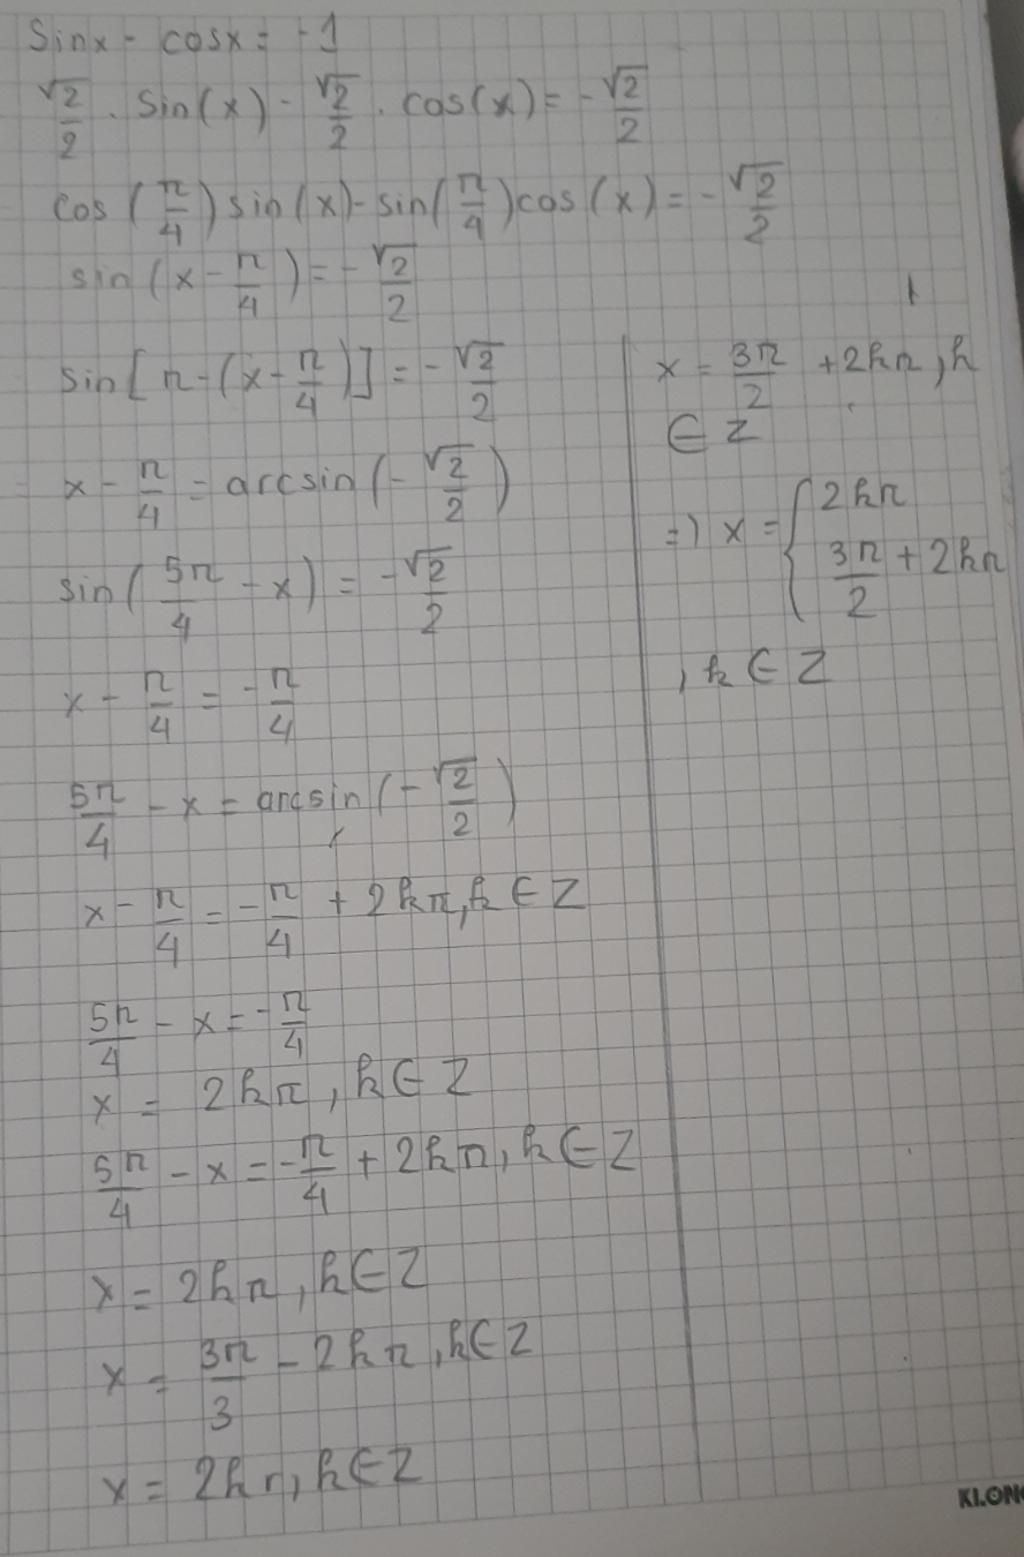 Sinx - cosx = -1
√2/2 . Sin(x) - √2/2 . cos(x) = -√2/2
cos(π/4)sin(x) - sin(π/4)cos(x) = -√2/2
sin(x - π/4) = -√2/2
sin[π-(x-π/4)] = -√2/2
x - π/4 = arcsin(-√2/2)
sin(5π/4 - x) = -√2/2
x - π/4 = -π/4
5π/4 - x = arcsin(-√2/2)
x - π/4 = -π/4 + 2kπ, k ∈ Z
5π/4 - x = -π/4
x = 2kπ, k ∈ Z
5π/4 - x = -π/4 + 2kπ, k ∈ Z
x = 2kπ, k ∈ Z
x = 3π/3 - 2kπ, k ∈ Z
x = 2kπ, k ∈ Z
x = 3π/2 + 2kπ, k
∈ Z
=> x = { 2kπ
3π/2 + 2kπ
, k ∈ Z